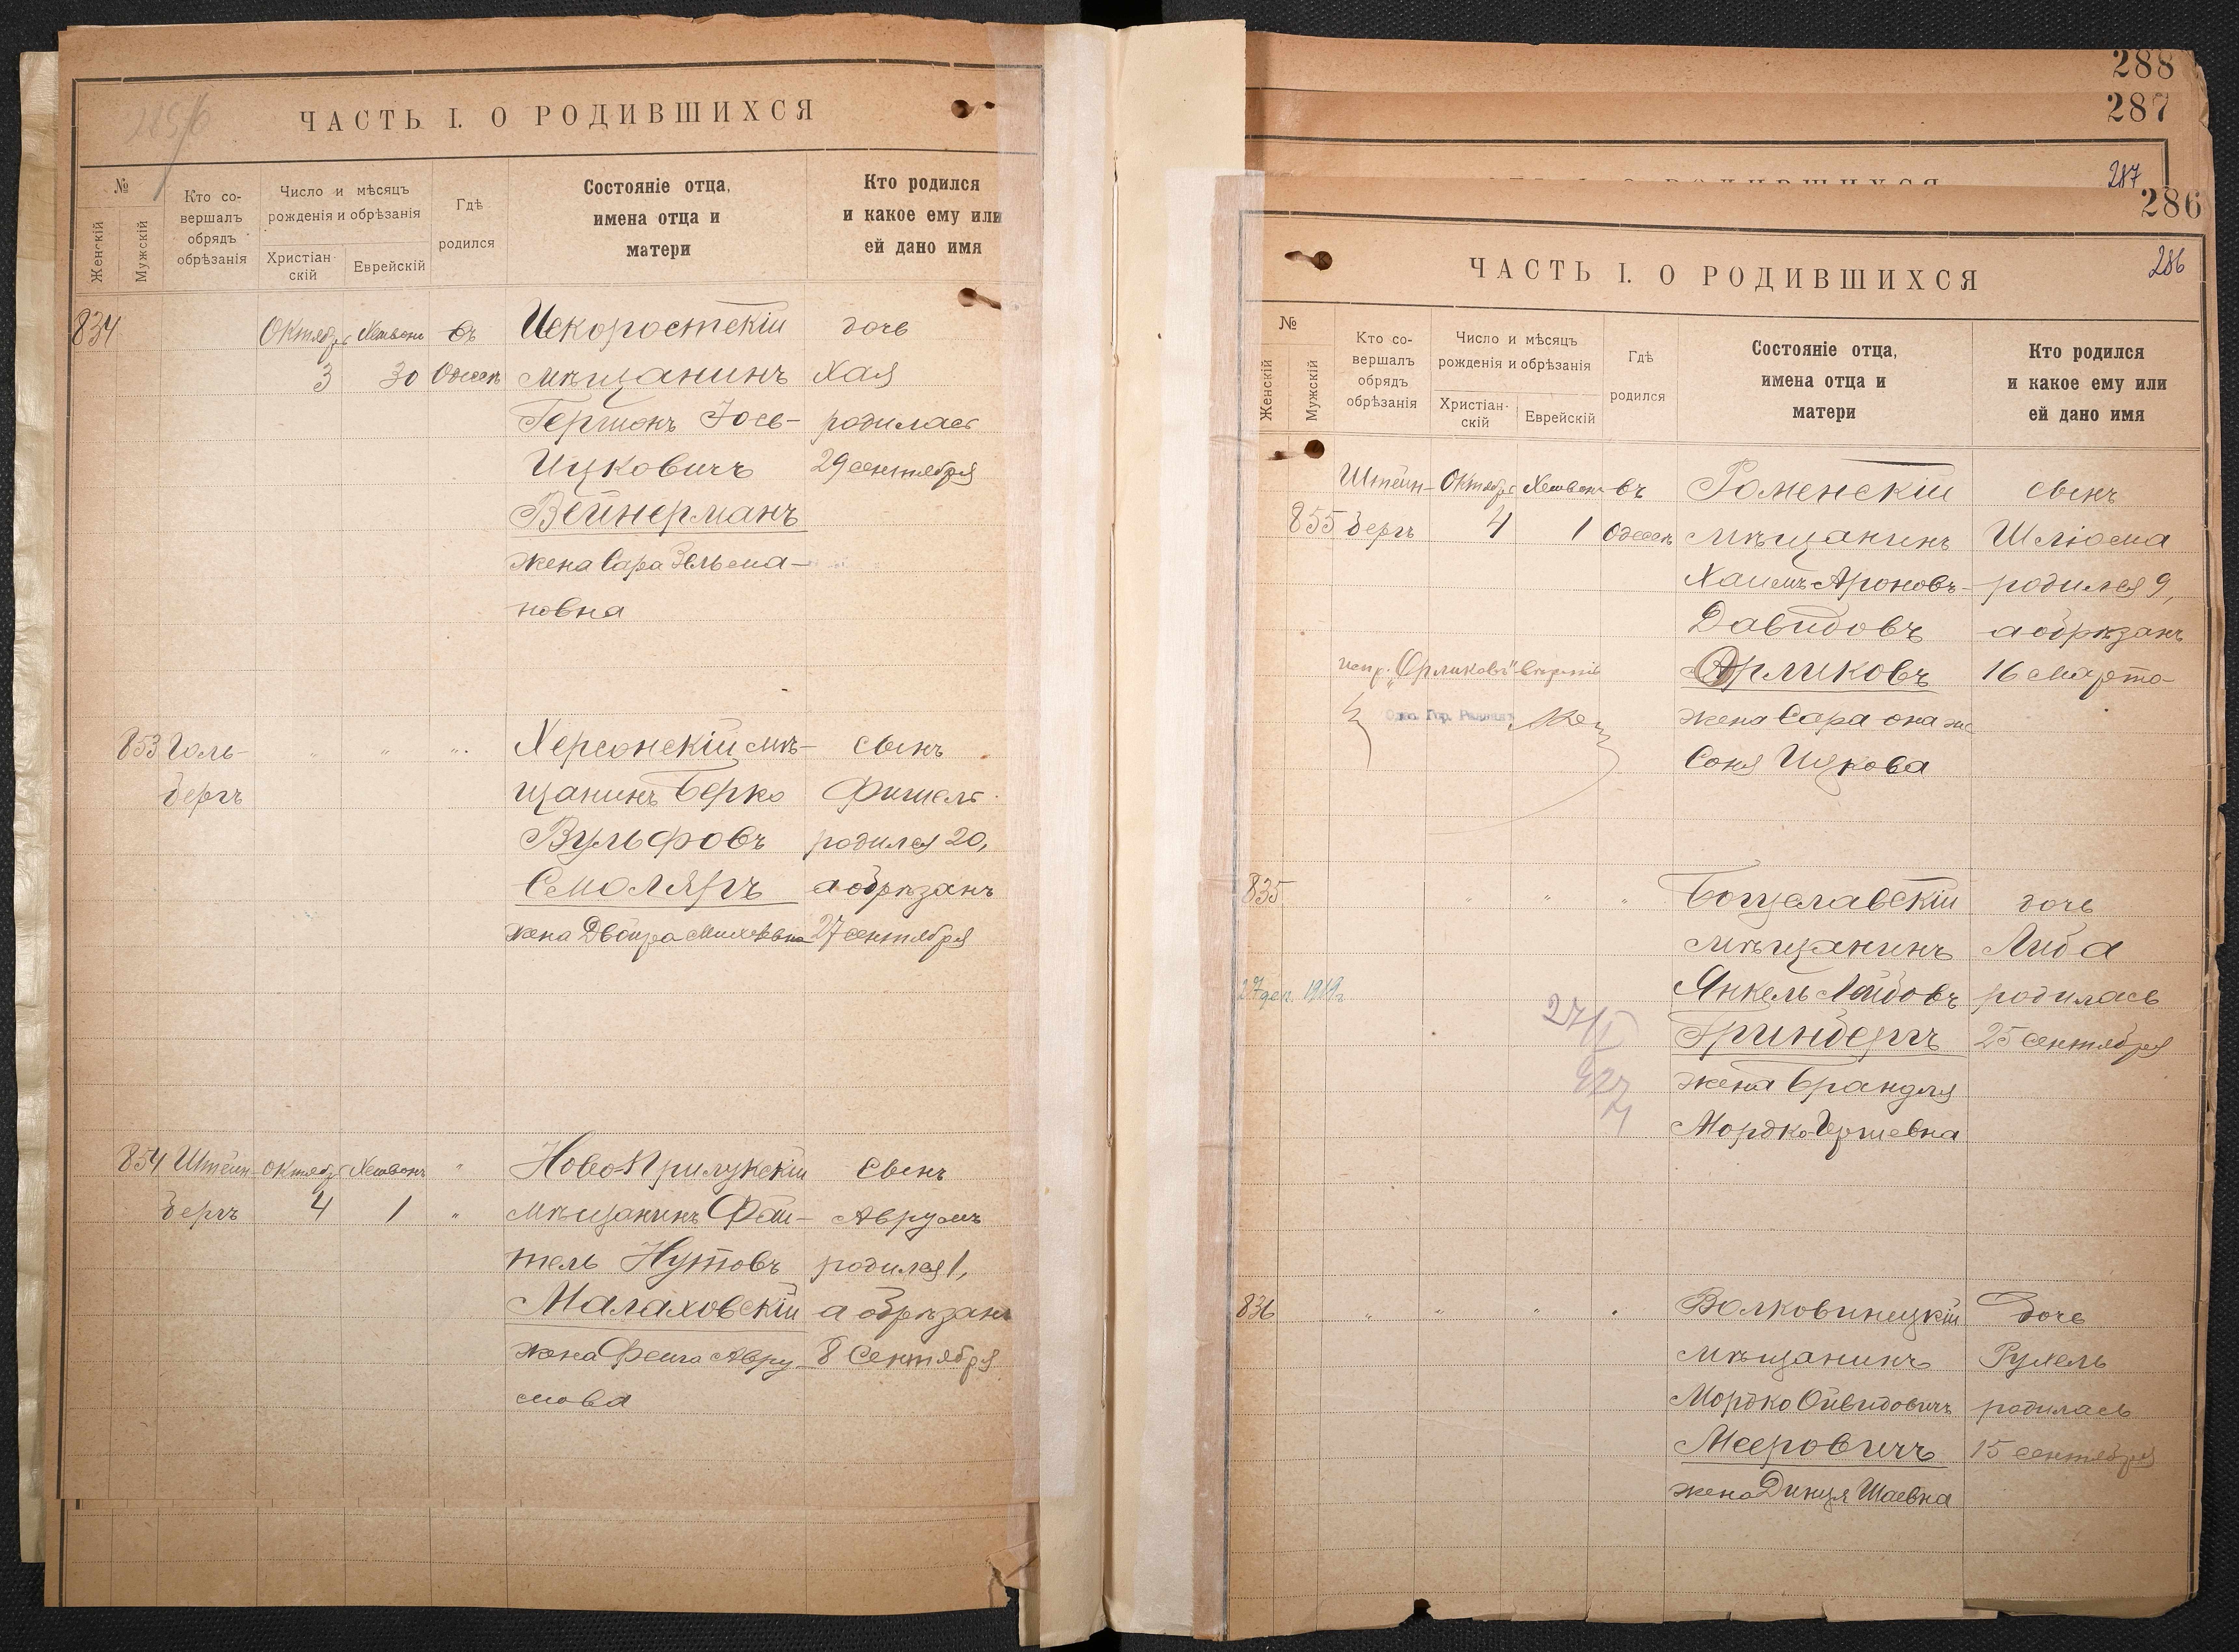 ЧАСТЬ I. О РОДИВШИХСЯ
№
Женскій
Мужскій
Кто со-
вершалъ
обрядъ
обрѣзанія
Число и мѣсяцъ
рожденія и обрѣзанія
Христіан-
скій
Еврейскій
Гдѣ
родился
Состояніе отца,
имена отца и
матери
Кто родился
и какое ему или
ей дано имя
834 Октябрь Хешвонъ въ Искоростскій дочь
3 30 Одессѣ мѣщанинъ Хая
Гершонъ Іось- родилась
Ицковичъ 29 сентября
Вейнерманъ
жена Сара Зельма-
новна
853 Голь- Херсонскій мѣ- сынъ
бергъ щанинъ Берко Фишель
Вульфовъ родился 20,
Смоляръ а обрѣзанъ
жена Двойра 27 сентября
854 Штейн- Октябрь Хешвонъ Ново-Прилукскій сынъ
бергъ 4 1 мѣщанинъ Фай- Аврумъ
тель Нутовъ родился 1,
Малаховскій а обрѣзанъ
жена Фейга Авру- 8 Сентября
мова
288
287
287
286
286
ЧАСТЬ I. О РОДИВШИХСЯ
№
Женскій
Мужскій
Кто со-
вершалъ
обрядъ
обрѣзанія
Число и мѣсяцъ
рожденія и обрѣзанія
Христіан-
скій
Еврейскій
Гдѣ
родился
Состояніе отца,
имена отца и
матери
Кто родился
и какое ему или
ей дано имя
Штейн- Октябрь Хешвонъ въ Роменскій сынъ
855 бергъ 4 1 Одессѣ мѣщанинъ Шлiома
Хаимъ Ароновъ- родился 9,
Давидовъ а обрѣзанъ
испр. „Орликовъ" вѣрить Орликовъ 16 Марта
Одес. Гор. Раввинъ жена Сара она же
Соня Ицкова
835 Богуславскій дочь
мѣщанинъ Либа
27 дек. 1919г. Янкель Лейбовъ родилась
27/I Гринбергъ 25 Сентября
жена Брандля
Мордко-Гершевна
836 Волковинецкій дочь
мѣщанинъ Рухель
Мордко Ойвидовичъ родилась
Мееровичъ 15 сентября
жена Динця Шаевна